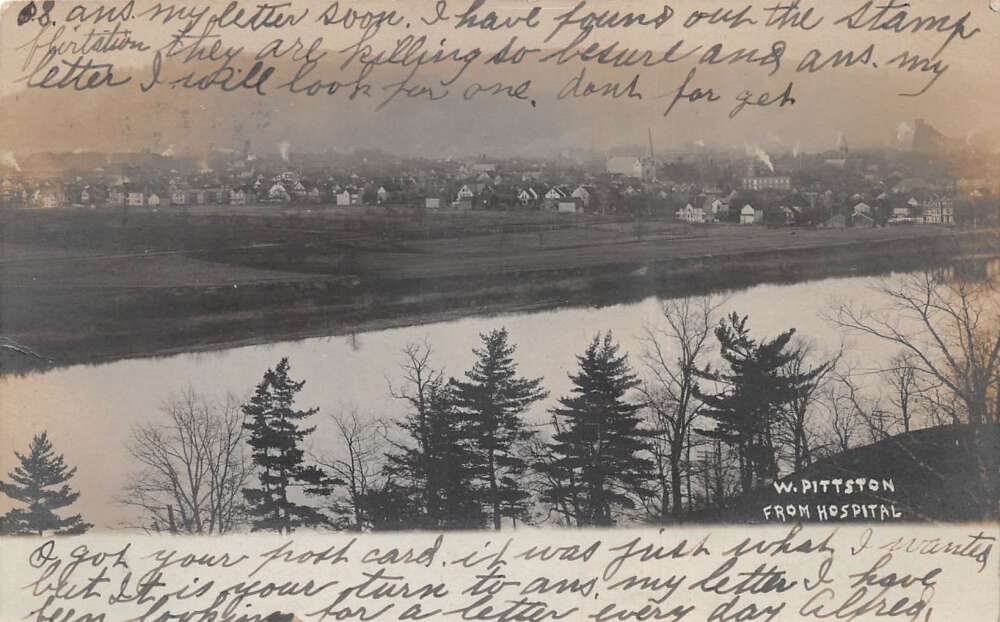 P.S. ans. my letter soon. I have found out the stamp
flirtation they are killing so besure and ans. my
letter I will look for one. dont forget
W. PITTSTON
FROM HOSPITAL
I got your post card. it was just what I wanted
but It is your turn to ans. my letter I have
been looking for a letter every day Alfred.